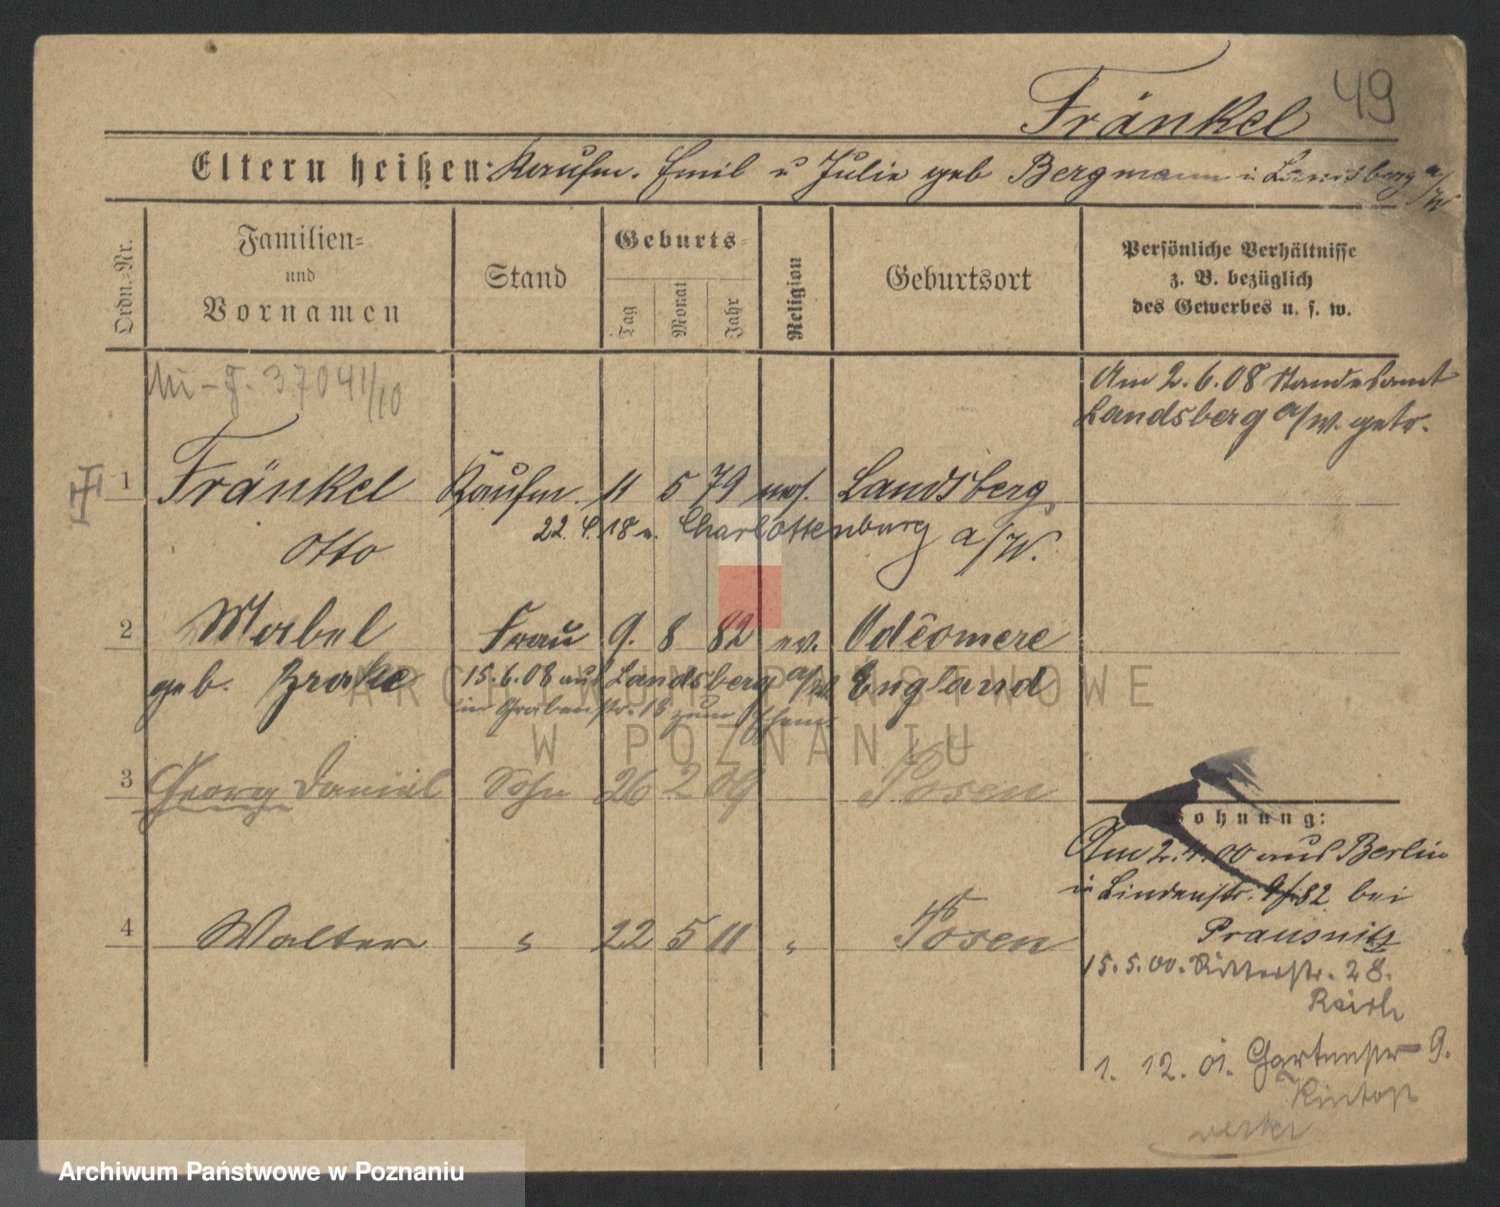 Fränkel 49
Eltern heißen: Kaufm. Emil u Julie geb Bergmann in Landsberg a/W
Ordn.=Nr.
Familien=
und
Vornamen
Stand
Geburts=
Tag
Monat
Jahr
Religion
Geburtsort
Persönliche Verhältnisse
z. B. bezüglich
des Gewerbes u. s. w.
37041/10
Am 2.6.08 Standesamt
Landsberg a/W. getr.
1 Fränkel Kaufm. 11 5 79 mos. Landsberg
Otto 22.4.18 n. Charlottenburg a/W.
2 Mabel Frau 9. 8 82 ev.
geb. 15.6.08 aus Landsberg a/W England
in Grabenstr. 18 zum
3 Georg Daniel Sohn 26 2 09 Posen
Wohnung:
Am 2.4.00 aus Berlin
in Lindenstr. bei
4 Walter " 22 5 11 " Posen
Prausnitz
15.5.00. Ritterstr. 28.
1. 12. 01. Gartenstr 9.
ARCHIWUM PAŃSTWOWE
W POZNANIU
Archiwum Państwowe w Poznaniu